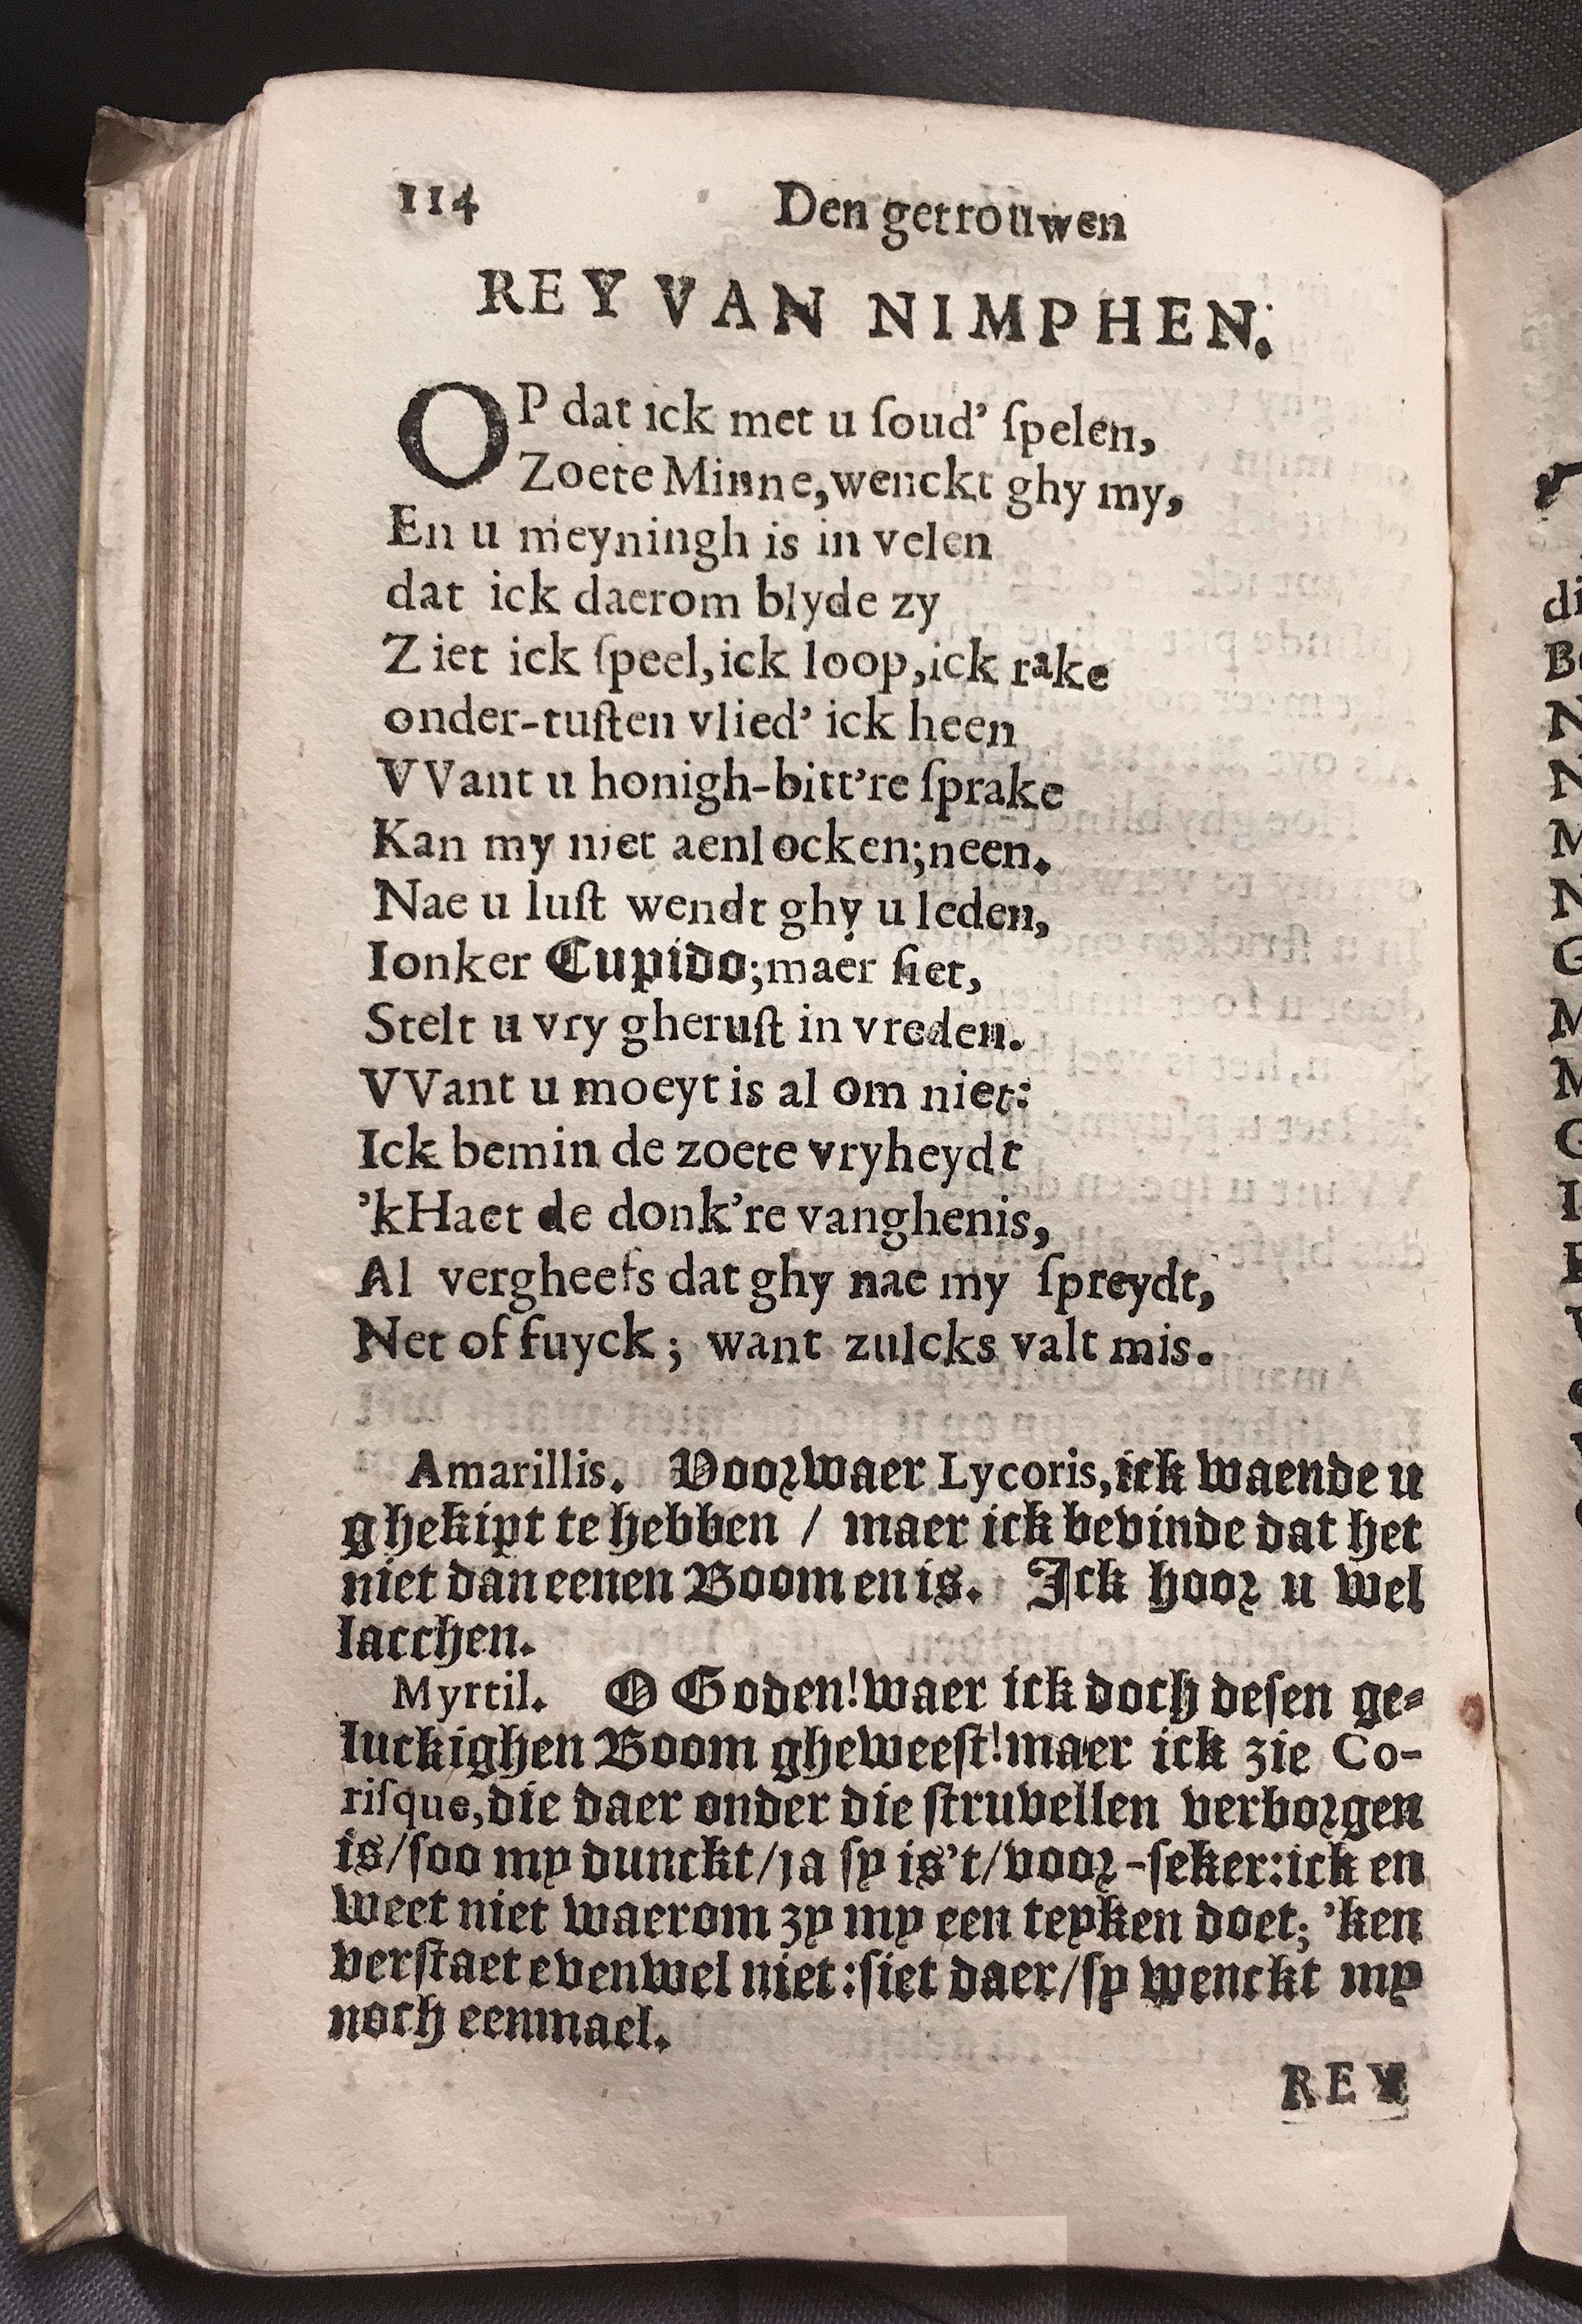 114 Den getrouwen
REY VAN NIMPHEN.
OP dat ick met u ſoud’ ſpelen,
Zoete Minne, wenckt ghy my,
En u meyningh is in velen
dat ick daerom blyde zy
Ziet ick ſpeel, ick loop, ick rake
onder-tuſten vlied’ ick heen
VVant u honigh-bitt’re ſprake
Kan my niet aenlocken; neen.
Nae u luſt wendt ghy u leden,
Ionker Cupido; maer ſiet,
Stelt u vry gheruſt in vreden.
VVant u moeyt is al om niet:
Ick bemin de zoete vryheydt
’kHaet de donk’re vanghenis,
Al vergheefs dat ghy nae my ſpreydt,
Net of fuyck; want zulcks valt mis.
Amarillis. Voorwaer Lycoris, ick waende u
ghekipt te hebben / maer ick bevinde dat het
niet dan eenen Boom en is. Ick hoor u wel
lacchen.
Myrtil. O Goden! waer ick doch deſen ge-
luckighen Boom gheweeſt! maer ick zie Co-
riſque, die daer onder die ſtruvellen verborgen
is/ ſoo my dunckt/ ja ſy is’t/ voor-ſeker: ick en
weet niet waerom zy my een teyken doet; ’ken
verſtaet evenwel niet: ſiet daer/ ſy wenckt my
noch eenmael.
REY
di